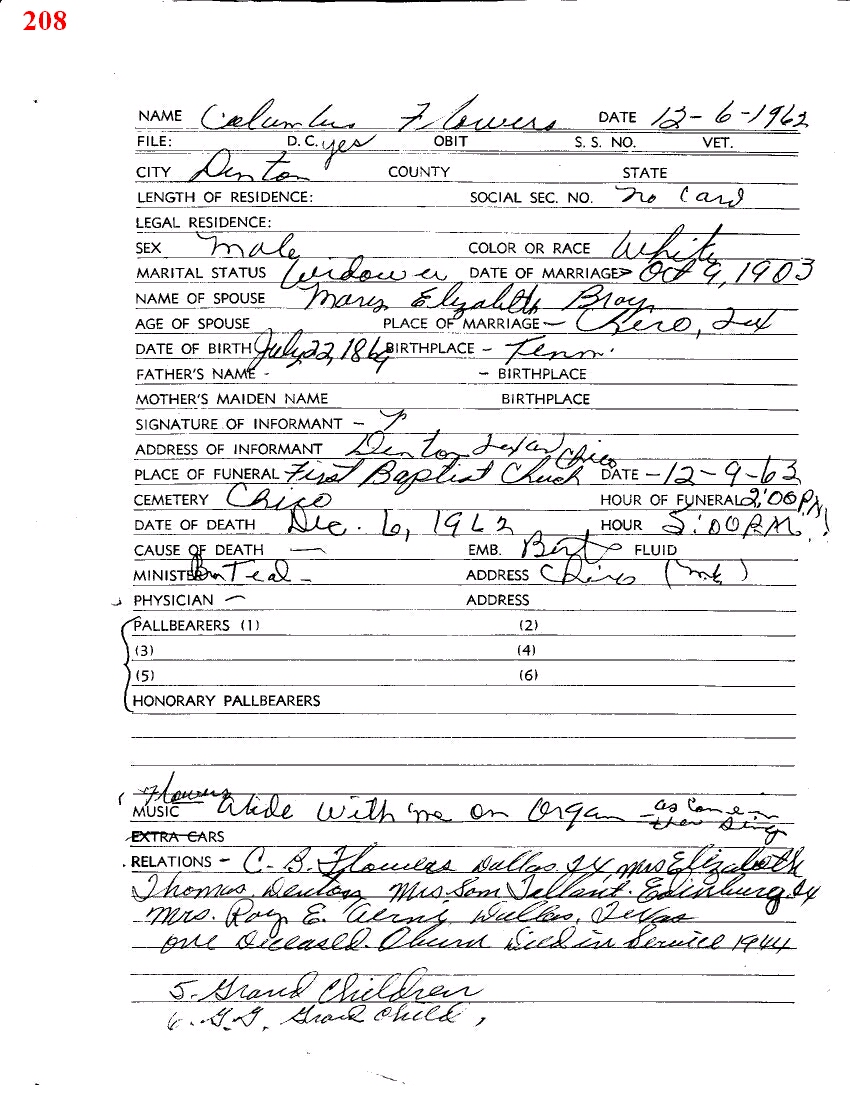 208
NAME Columbus Flowers DATE 12-6-1962
FILE: D.C. yes OBIT S. S. NO. VET.
CITY Denton COUNTY STATE
LENGTH OF RESIDENCE: SOCIAL SEC. NO. no Card
LEGAL RESIDENCE:
SEX male COLOR OR RACE White
MARITAL STATUS Widower DATE OF MARRIAGE Oct 9, 1903
NAME OF SPOUSE Mary Elizabeth
AGE OF SPOUSE PLACE OF MARRIAGE — Tex
DATE OF BIRTH July 22, 1869 BIRTHPLACE - Tenn.
FATHER'S NAME - - BIRTHPLACE
MOTHER'S MAIDEN NAME BIRTHPLACE
SIGNATURE OF INFORMANT -
ADDRESS OF INFORMANT Denton Texas
PLACE OF FUNERAL First Baptist Church Chico DATE -12-9-62
CEMETERY Chico HOUR OF FUNERAL 2:00 P.M
DATE OF DEATH Dec. 6, 1962 HOUR 5:00 P.M.
CAUSE OF DEATH — EMB. FLUID
MINISTER Teal - ADDRESS Chico
PHYSICIAN — ADDRESS
PALLBEARERS (1) (2)
(3) (4)
(5) (6)
HONORARY PALLBEARERS
Flowers
MUSIC Abide With me on Organ as come in
EXTRA CARS
RELATIONS - C. B. Flowers Dallas, Tx, Mrs Elizabeth
Thomas, Denton, Mrs Som Tellant. Edinburg, Tx
Mrs. Roy E. Dallas, Texas
one Deceased. Died in Service 1944
5. Grand Children
6. G. G. Grand Child,